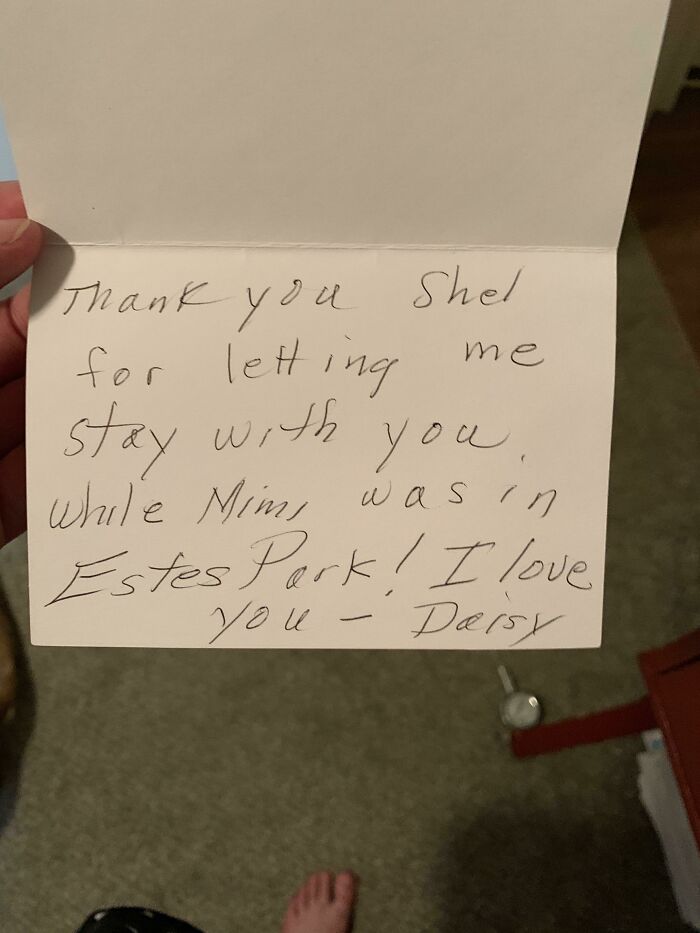 Thank you Shel
for letting me
stay with you
while Mimi was in
Estes Park! I love
you - Daisy